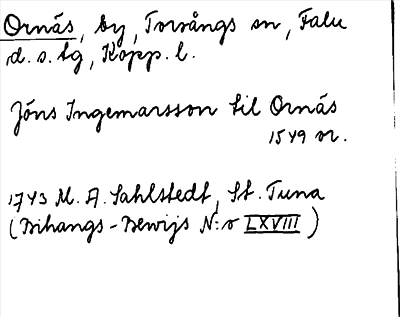 Ornäs, by, Torsångs sn, Falu
d. s. bg, Kopp. l.
Jöns Ingemarsson til Ornäs
1549 or.
1743 M. A. Sahlstedt, St. Tuna
(Bihangs-Bewijs N:o LXVIII)